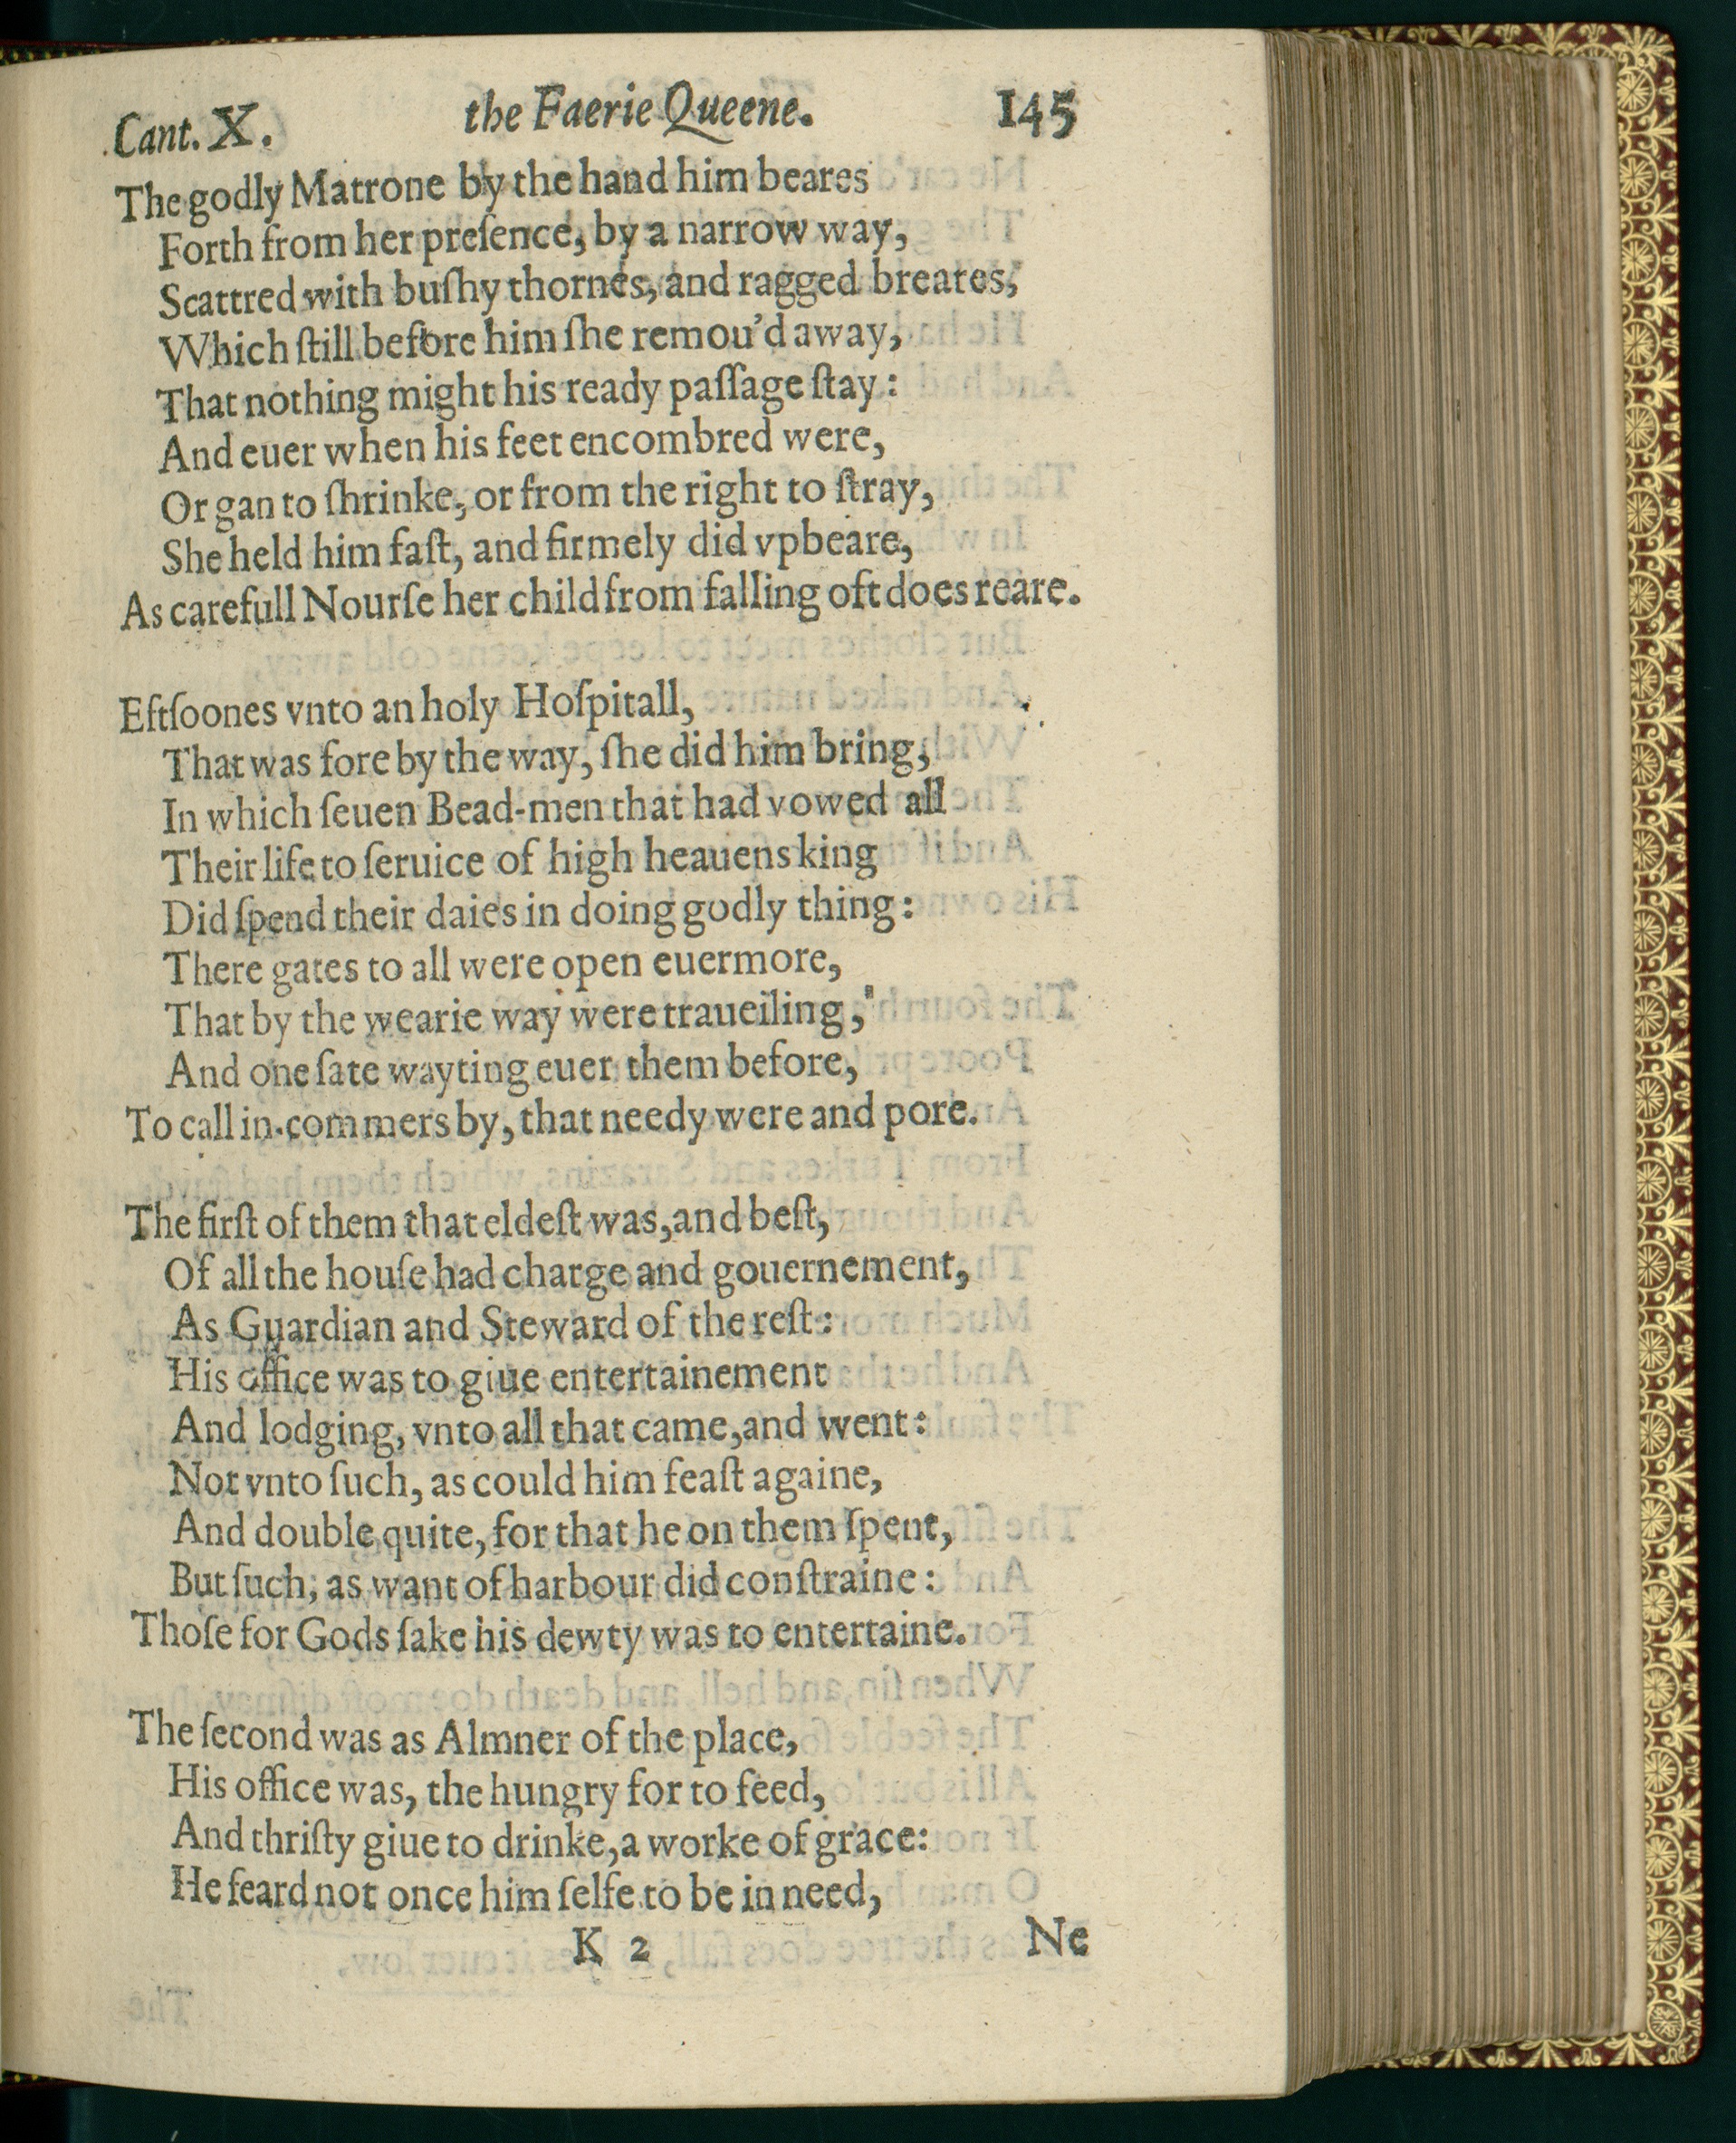 Cant. X. the Faerie Queene. 145
The godly Matrone by the hand him beares
Forth from her preſence, by a narrow way,
Scattred with buſhy thornes, and ragged breares,
Which ſtill before him ſhe remou'd away,
That nothing might his ready paſſage ſtay:
And euer when his feet encombred were,
Or gan to ſhrinke, or from the right to ſtray,
She held him faſt, and firmely did vpbeare,
As carefull Nourſe her child from falling oft does reare.
Eftſoones vnto an holy Hoſpitall,
That was fore by the way, ſhe did him bring,
In which ſeuen Bead-men that had vowed all
Their life to ſeruice of high heauens king
Did ſpend their daies in doing godly thing:
There gates to all were open euermore,
That by the wearie way were traueiling,
And one ſate wayting euer them before,
To call in-commers by, that needy were and pore.
The firſt of them that eldeſt was, and beſt,
Of all the houſe had charge and gouernement,
As Guardian and Steward of the reſt:
His office was to giue entertainement
And lodging, vnto all that came, and went:
Not vnto ſuch, as could him feaſt againe,
And double quite, for that he on them ſpent,
But ſuch, as want of harbour did conſtraine:
Thoſe for Gods ſake his dewty was to entertaine.
The ſecond was as Almner of the place,
His office was, the hungry for to feed,
And thriſty giue to drinke, a worke of grace:
He feard not once him ſelfe to be in need,
K 2 Ne